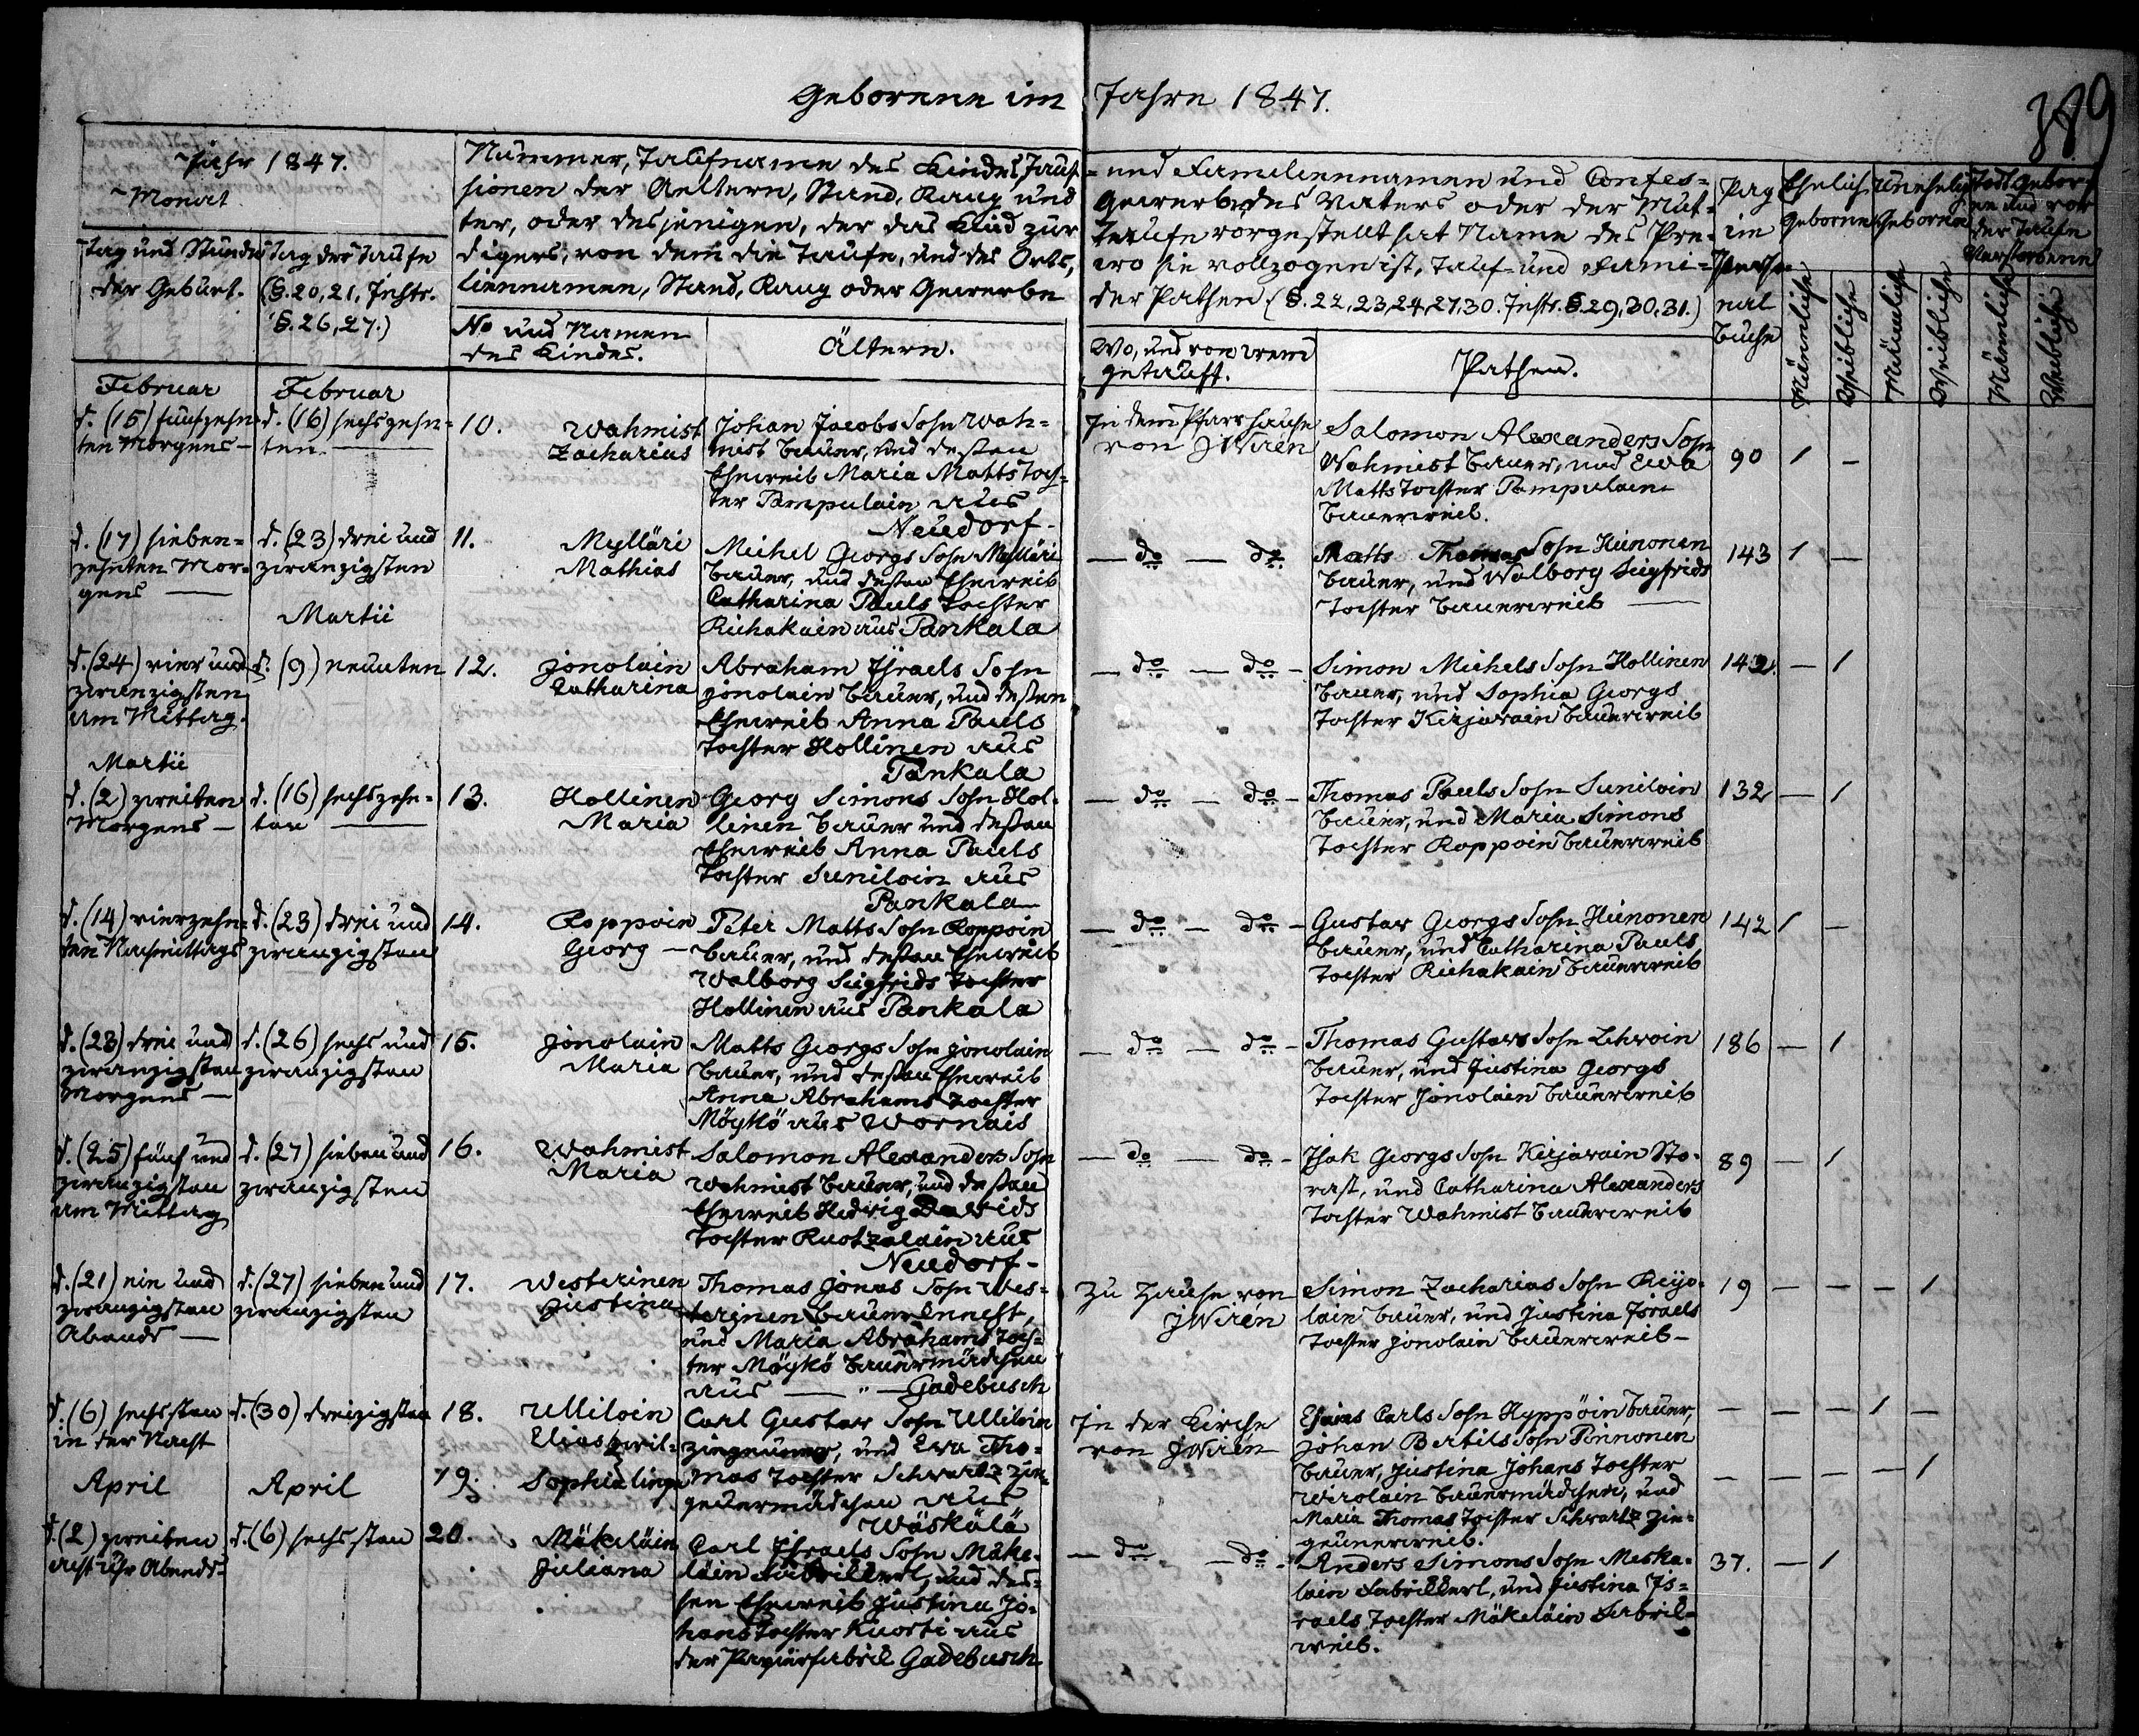 Geborene im Jahre 1847.
389
Jahr 1847.
Monat
Tag und Stunde
der Geburt.
Tag der Taufe
(§. 20, 21, Instr.
§. 26, 27.)
Nummer, Taufname des Kindes, Tauf-
sionen der Aeltern, Stand, Rang und
ter, oder desjenigen, der das Kind zur
digers, von dem die Taufe, und des Orts,
liennamen, Stand, Rang oder Gewerbe
No und Namen
des Kindes.
Ältern.
= und Familiennamen und Confes=
Gewerbe des Vaters oder der Mut=
Taufe vorgestellt hat Name des Pre=
wo sie vollzogen ist, Tauf- und Fami=
der Pathen (§. 22, 23, 24, 27, 30. Instr. §. 29, 30, 31.)
Wo, und von wem
getauft.
Pathen.
Pag
im
Perso=
nal
Buche
Ehelich
geborne
Unehelich
Geborene
Todt gebor=
ne und vor
der Taufe
Verstorbene
Männliche
Weibliche
Männliche
Weibliche
Männliche
Weibliche
Februar
Februar
d. (15) fünfzehn=
ten Morgens —
d. (16) sechszehn=
ten. —
10.
Wahmist
Zacharias
Johan Jacobs Sohn Wah=
mist Bauer, und dessen
Eheweib Maria Matts Toch=
ter Pampulain aus
Neudorf-
In dem Pfarrhause
von J Wirén
Salomon Alexanders Sohn
Wahmist Bauer, und Ewa
Matts Tochter Pampulain
Bauerweib.
90 1 —
d. (17) sieben=
zehnten Mor=
gens —
d. (23) drei und
zwanzigsten
11.
Mylläri
Mathias
Michel Georgs Sohn Mylläri
Bauer, und dessen Eheweib
Catharina Pauls Tochter
Riihakain aus Pankala
— do — do
Matts Thomas Sohn Hünonen
Bauer, und Walborg Siegfrids
Tochter Bauerweib —
143 1 —
Martii
d. (24) vier und
zwanzigsten
am Mittag.
d. (9) neunten
12.
Jonolain
Catharina
Abraham Israels Sohn
Jonolain Bauer, und dessen
Eheweib Anna Pauls
Tochter Hollinen aus
Pankala
— do — do —
Simon Michels Sohn Hollinen
Bauer, und Sophia Georgs
Tochter Kirjavain Bauerweib
142. — 1
Martii
d. (2) zweiten
Morgens —
d. (16) sechszehn=
ten —
13.
Hollinen
Maria
Georg Simons Sohn Hol-
linen Bauer und dessen
Eheweib Anna Pauls
Tochter Suniloin aus
Pankala
— do — do —
Thomas Pauls Sohn Suniloin
Bauer, und Maria Simons
Tochter Roppoin Bauerweib
132 — 1
d. (14) vierzehn=
ten Nachmittags
d. (23) drei und
zwanzigsten
14.
Roppoin
Georg —
Peter Matts Sohn Roppoin
Bauer, und dessen Eheweib
Walborg Siegfrids Tochter
Hollinen aus Pankala
— do — do —
Gustav Georgs Sohn Hünonen
Bauer, und Catharina Pauls
Tochter Riihakain Bauerweib
142 1 —
d. (23) drei und
zwanzigsten
Morgens —
d. (26) sechs und
zwanzigsten
15.
Jonolain
Maria
Matts Georgs Sohn Jonolain
Bauer, und dessen Eheweib
Anna Abrahams Tochter
Möykö aus Wornais
— do — do —
Thomas Gustavs Sohn Lehvoin
Bauer, und Justina Georgs
Tochter Jonolain Bauerweib
186 — 1
d. (25) fünf und
zwanzigsten
am Mittag
d. (27) sieben und
zwanzigsten
16.
Wahmist
Maria
Salomon Alexanders Sohn
Wahmist Bauer, und dessen
Eheweib Hedvig Davids
Tochter Ruotzalain aus
Neudorf-
— do — do —
Isak Georgs Sohn Kirjavain Sto-
rast, und Catharina Alexanders
Tochter Wahmist Bauerweib
89 — 1
d. (21) ein und
zwanzigsten
Abends —
d. (27) sieben und
zwanzigsten
17.
Westerinen
Justina
Thomas Jonas Sohn Wes=
terinen Bauer Knecht,
und Maria Abrahams Toch=
ter Möykö Bauermädchen
aus — " — Gadebusch
Zu Hause von
J Wirén
Simon Zacharias Sohn Reijo-
lain Bauer, und Justina Israels
Tochter Jonolain Bauerweib —
19 — — — 1
d. (6) sechsten
in der Nacht
d. (30) dreizigsten
18.
Ulliloin
Elias zwil-
19.
Sophia linge
Carl Gustav Sohn Ulliloin
Ziegeuner, und Ewa Tho=
mas Tochter Schwartz Zie=
geunermädchen aus
Wäskälä
In der Kirche
von J Wirén
Esaias Carls Sohn Hyppöin Bauer,
Johan Bertils Sohn Pinnonen
Bauer, Justina Johans Tochter
Wirolain Bauermädchen, und
Maria Thomas Tochter Schwartz Zie=
geunerweib.
— — — 1 —
— — — — 1
April
April
d. (2) zweiten
acht Uhr Abends
d. (6) sechsten
20.
Mäkeläin
Juliana
Carl Israels Sohn Mäke-
läin Fabrikkerl, und des=
sen Eheweib Justina Jo=
hans Tochter Kuorti aus
der Papierfabrik Gadebusch
— do — do —
Anders Simons Sohn Meska-
lain Fabrikkerl, und Justina Is=
raels Tochter Mäkeläin Fabrik=
weib.
37. — 1